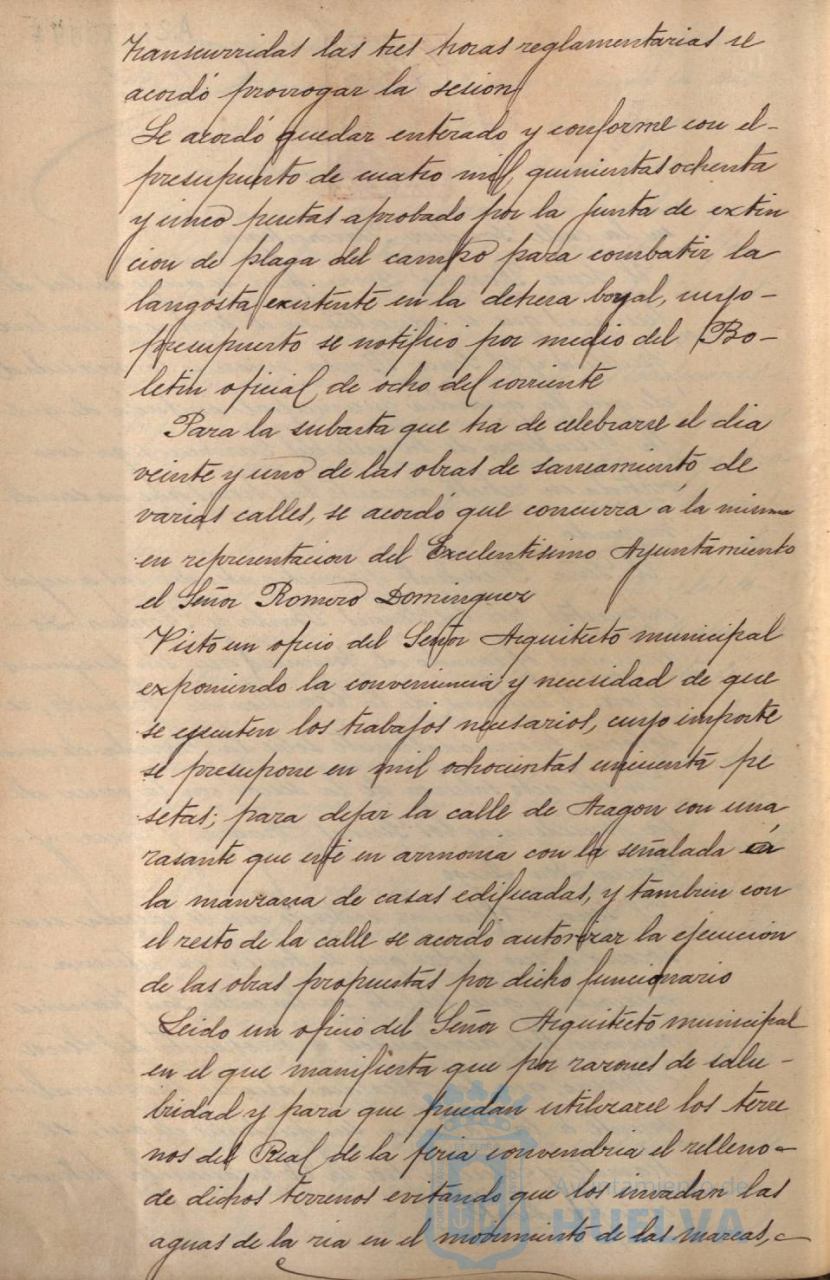 transcurridas las tres horas reglamentarias se
acordó prorrogar la sesion
Se acordó quedar enterado y conforme con el-
presupuesto de cuatro mil, quinientas ochenta
y cinco pesetas aprobado por la Junta de extin
cion de plaga del campo para combatir la
langosta existente en la dehesa boyal, cuyo-
presupuesto se notificó por medio del Bo-
letin oficial de ocho del corriente
Para la subasta que ha de celebrarse el dia
veinte y uno de las obras de saneamiento de
varias calles, se acordó que concurra á la misma
en representacion del Excelentisimo Ayuntamiento
el Señor Romero Dominguez
Visto un oficio del Señor Arquitecto municipal
exponiendo la conveniencia y necesidad de que
se ejecuten los trabajos necesarios, cuyo importe
se presupone en mil ochocientas cincuenta pe
setas; para dejar la calle de Aragon con una
rasante que esté en armonia con la señalada á
la manzana de casas edificadas, y tambien con
el resto de la calle se acordó autorizar la ejecución
de las obras propuestas por dicho funcionario
Leido un oficio del Señor Arquitecto municipal
en el que manifiesta que por razones de salu-
bridad y para que puedan utilizarse los terre
nos del Real de la feria convendria el relleno-
de dichos terrenos evitando que los invadan las
aguas de la ria en el movimiento de las mareas,
Ayuntamiento de
HUELVA